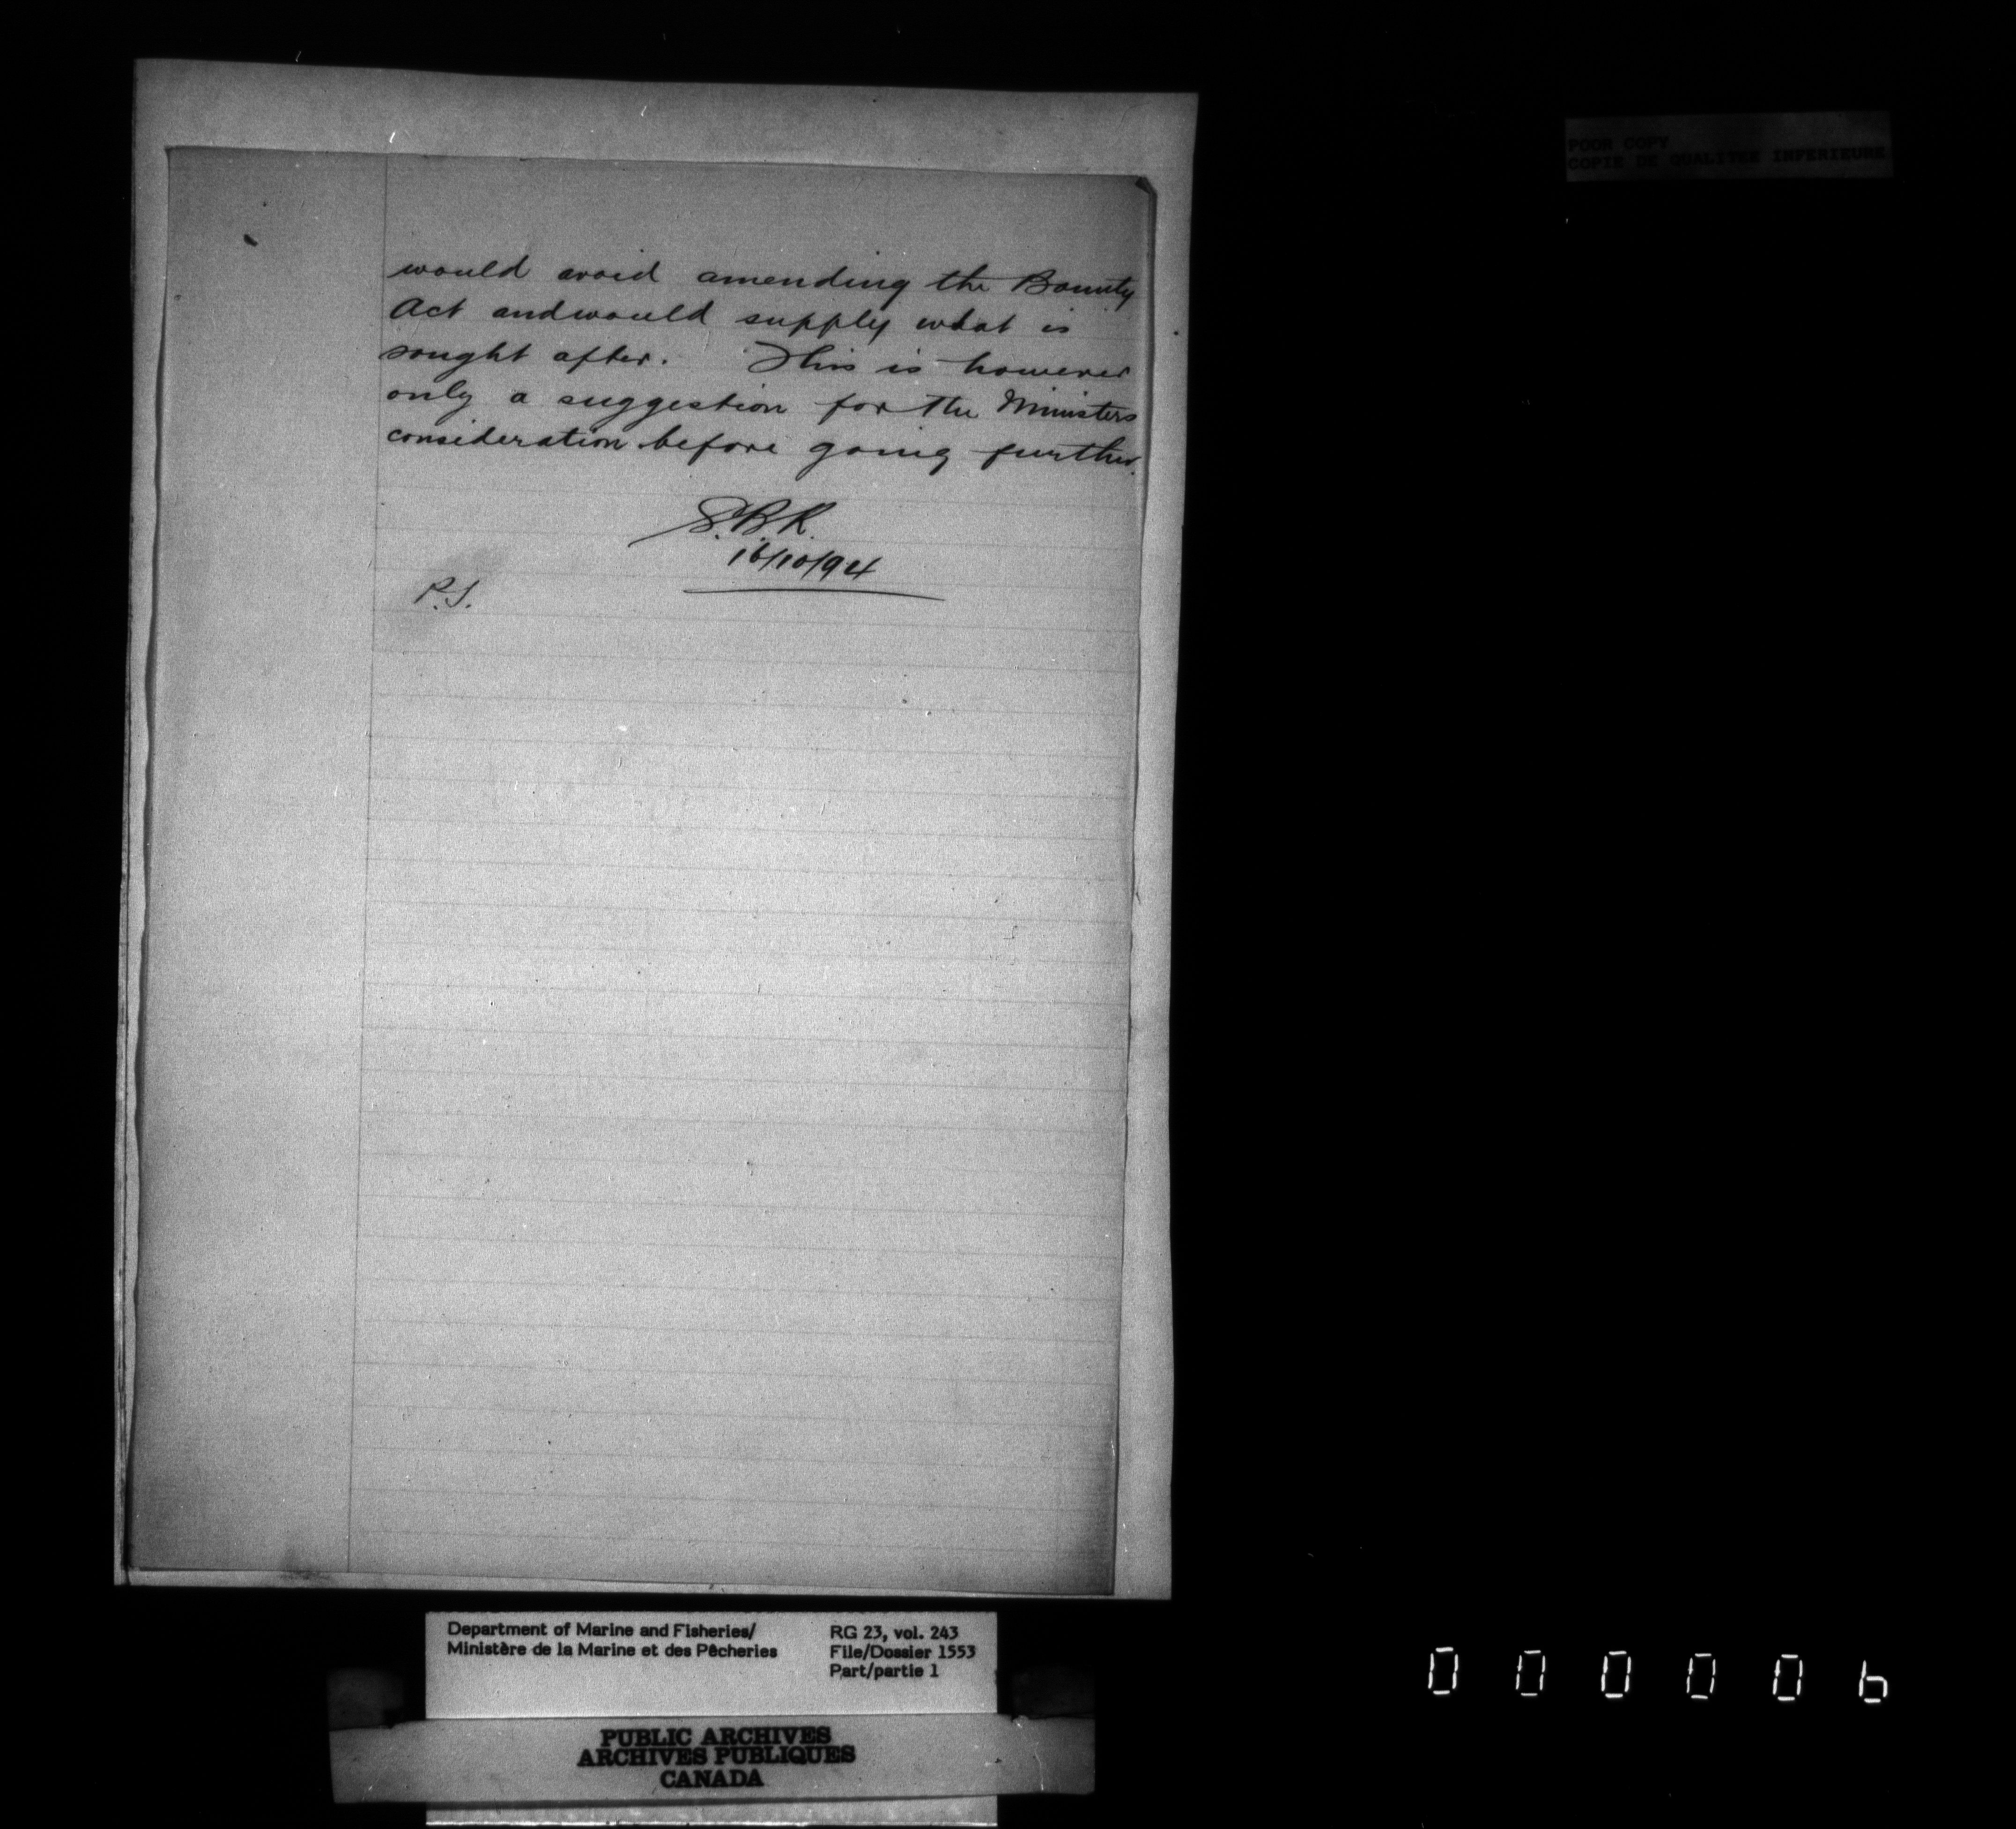 POOR COPY
COPIE DE QUALITEE INFERIEURE
would avoid amending the Bounty
Act and would supply what is
sought after. This is however
only a suggestion for the Ministers
consideration before going further.
S.B.K.
16/10/94
P.S.
Department of Marine and Fisheries/
Ministère de la Marine et des Pêcheries
RG 23, vol. 243
File/Dossier 1553
Part/partie 1
PUBLIC ARCHIVES
ARCHIVES PUBLIQUES
CANADA
000006